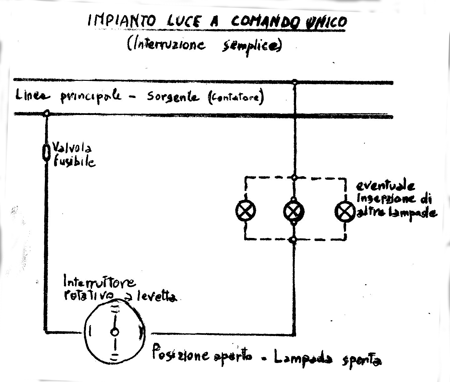 IMPIANTO LUCE A COMANDO UNICO
(Interruzione semplice)
Linea principale - Sorgente (Contatore)
Valvola
fusibile
eventuale
inserzione di
altre lampade
Interruttore
rotativo a levetta
Posizione aperto - Lampada spenta